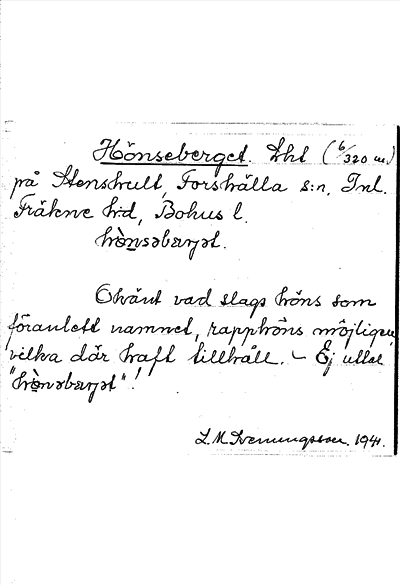 Hönseberget. Lht (6/320 m)
på Stenshult, Forshälla s:n, Inl.
Fräkne h:d, Bohus l.
hö̀nsəbærjət.
Okänt vad slags höns som
föranlett namnet, rapphöns möjligen,
vilka där haft tillhåll. – Ej uttal
"hö̀nəbærjət"!
L. M. Svenungsson. 1941.